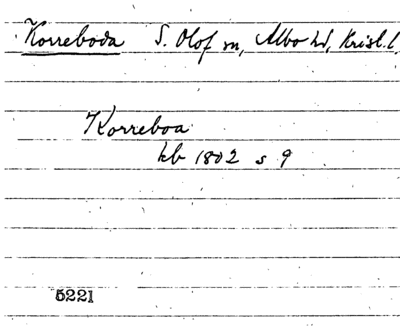 Korreboda S. Olof sn, Albo hd, Krist. l.
Korreboa
kb 1802 s 9
5221